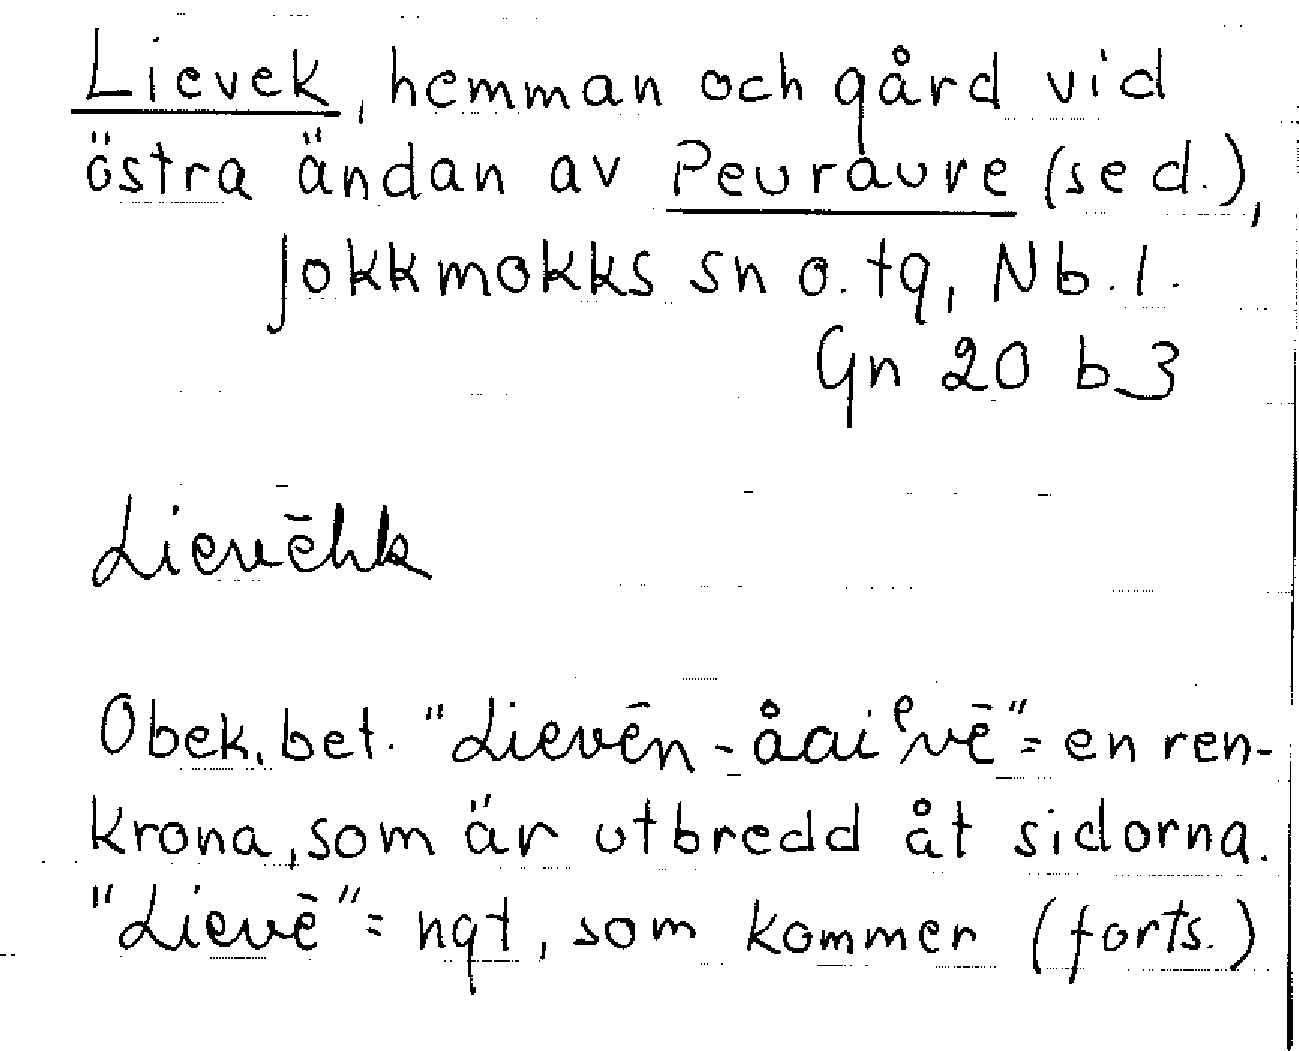 Lievek, hemman och gård vid
östra ändan av Peuraure (se d.),
Jokkmokks sn o. tg, Nb. l.
Gn 20 b 3
Lievēhk
Obek. bet. "Lievēn-åaiᵉvē" = en ren-
krona, som är utbredd åt sidorna.
"Lievē" = ngt, som kommer (forts.)